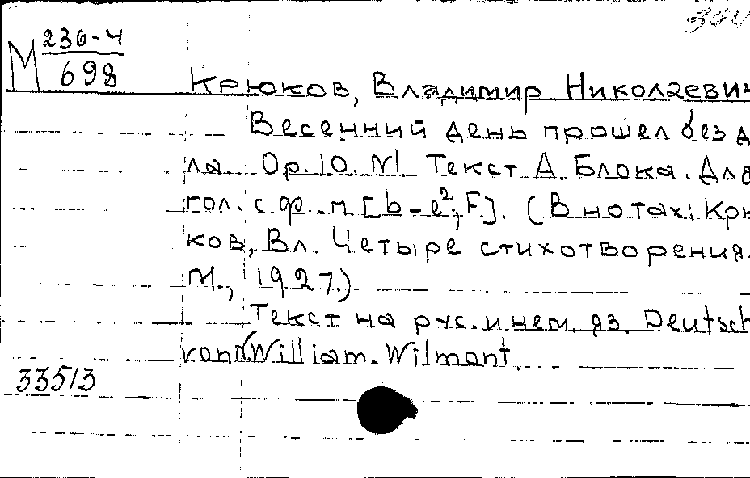 М 236-4
698
Крюков, Владимир Николаевич
Весенний день прошел без д
ла. Op. 10. N1 Текст А. Блока. Для
гол. с ф.-п. [b-e²; F]. (В нотах: Крю
ков, Вл. Четыре стихотворения.
М., 1927.)
Текст на рус. и нем. яз. Deutsch
von William. Wilmont.
33513